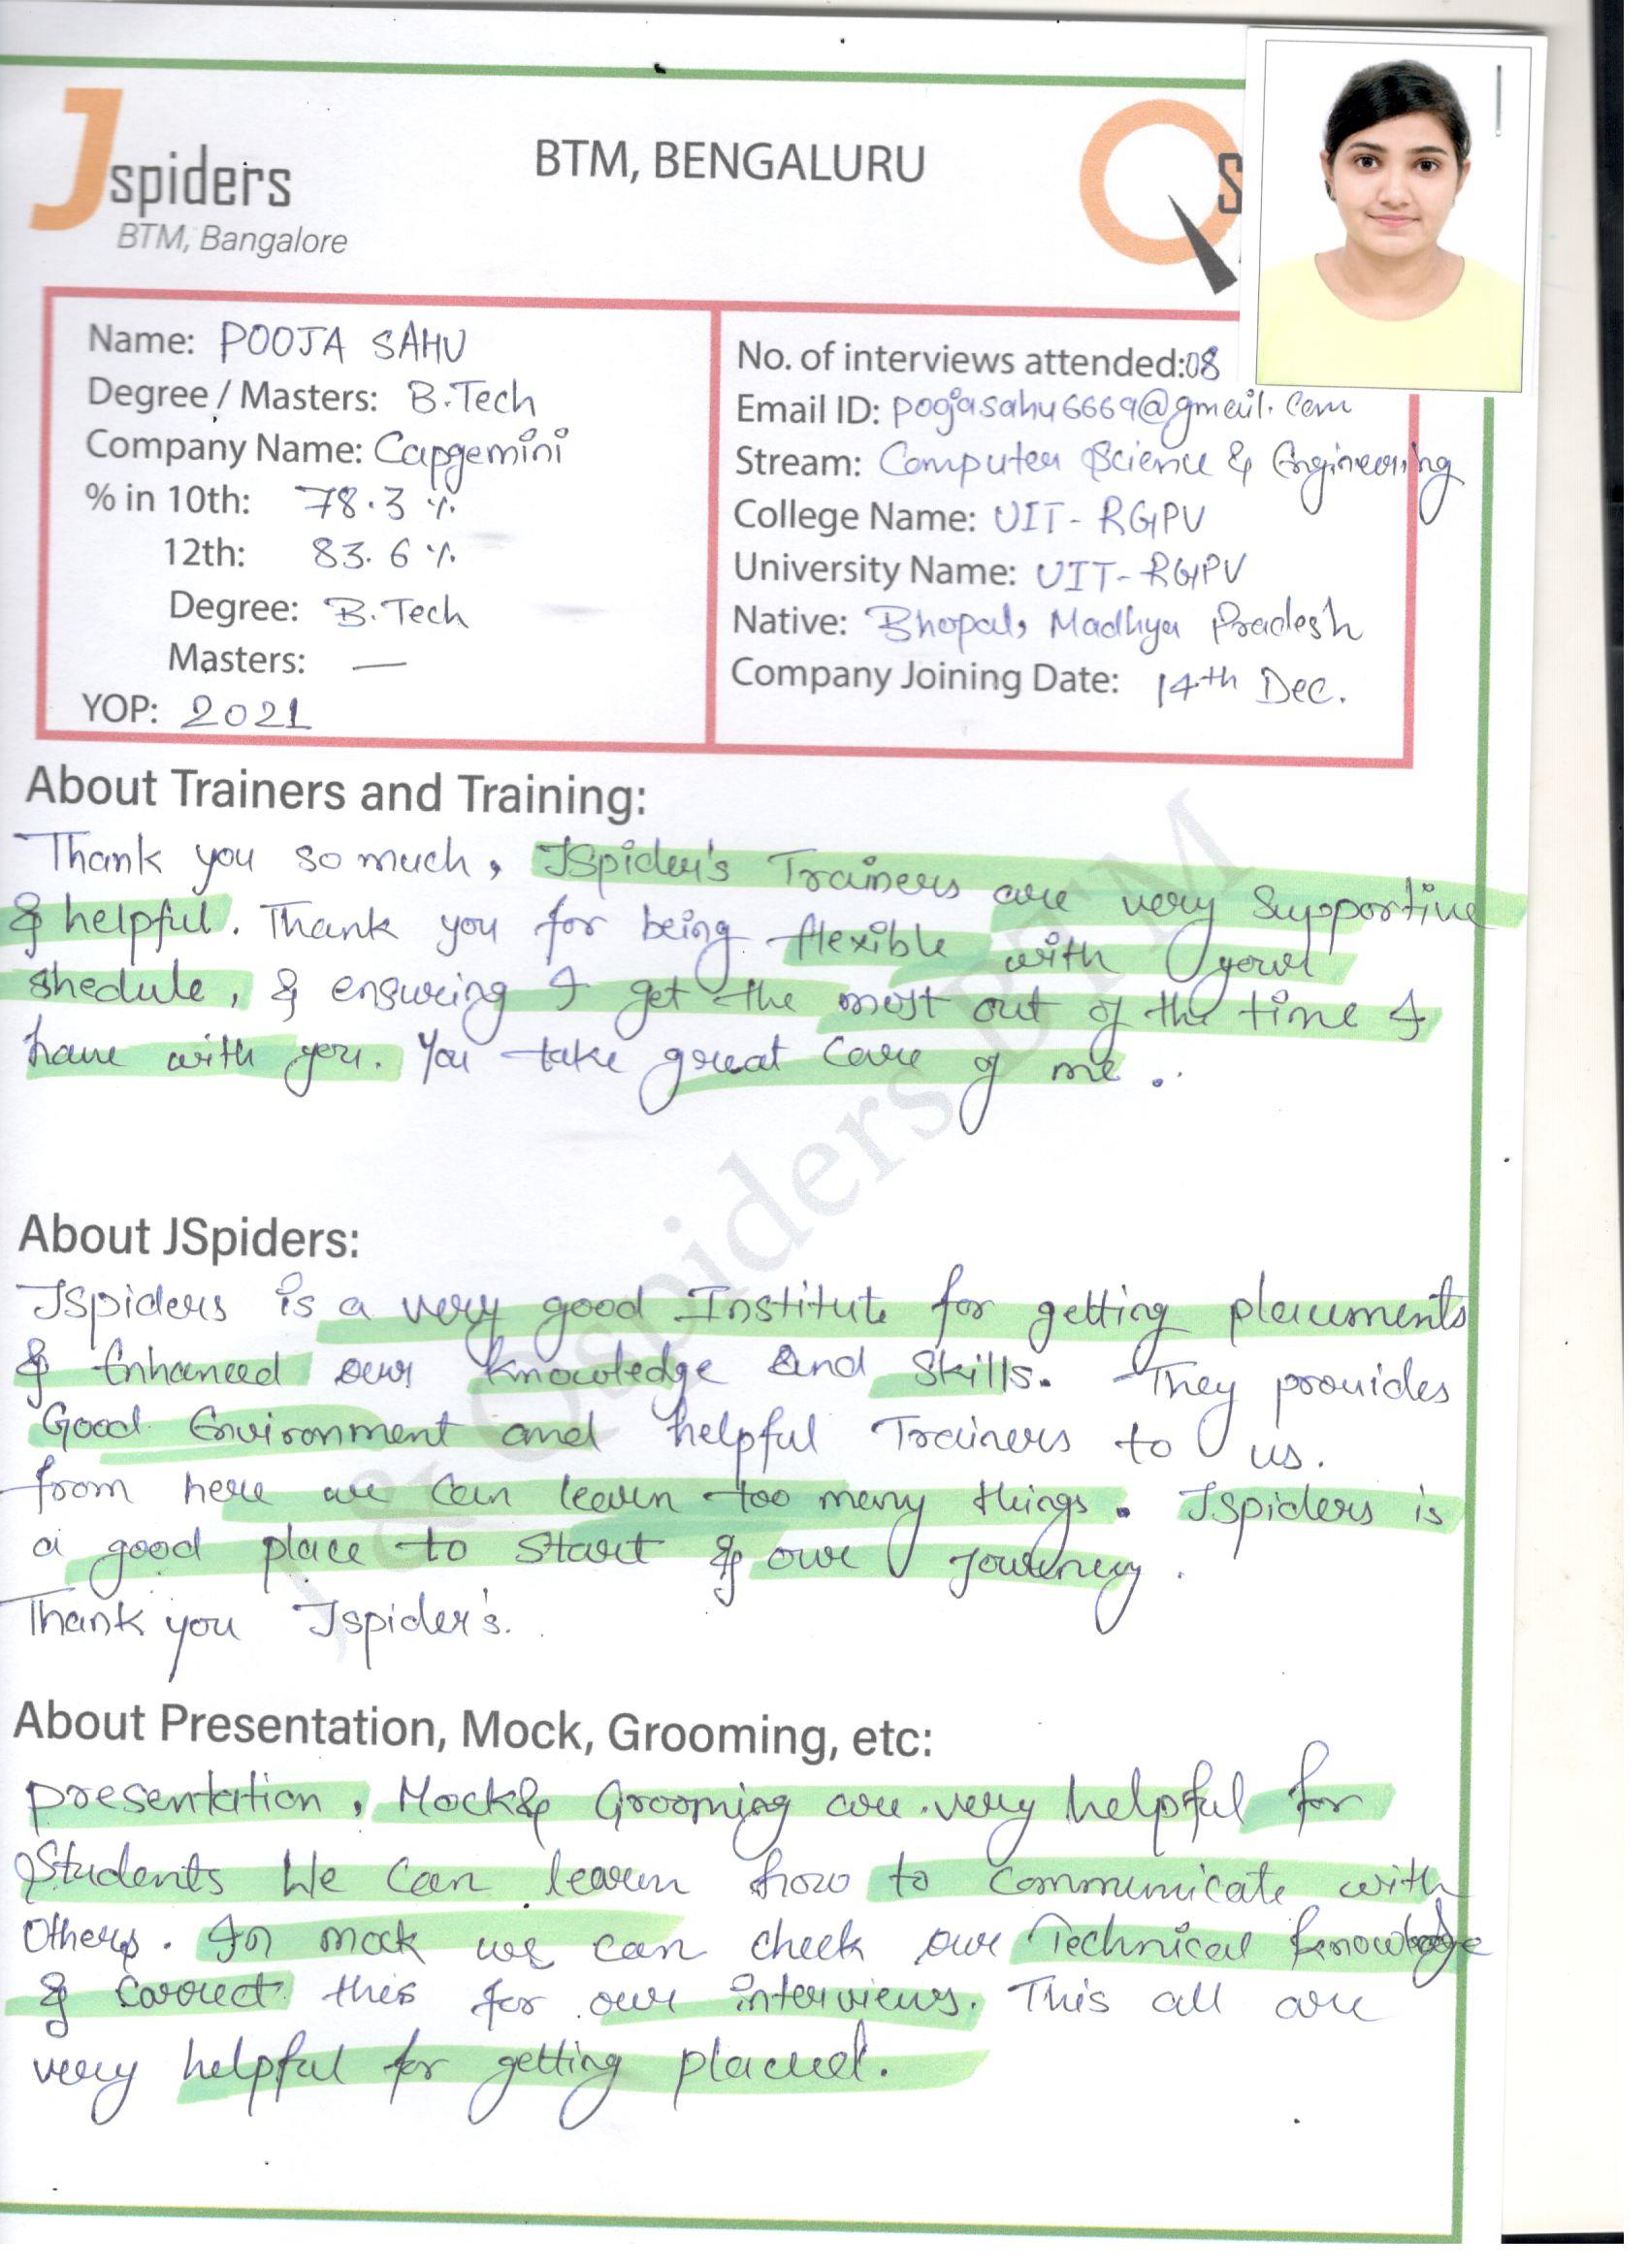 Jspiders
BTM, Bangalore
BTM, BENGALURU
QS
Name: POOJA SAHU
Degree / Masters: B.Tech
Company Name: Capgemini
% in 10th: 78.3 %
12th: 83.6 %
Degree: B.Tech
Masters: —
YOP: 2021
No. of interviews attended: 08
Email ID: poojasahu6669@gmail.com
Stream: Computer Science & Engineering
College Name: UIT-RGPV
University Name: UIT-RGPV
Native: Bhopal, Madhya Pradesh
Company Joining Date: 14th Dec.
About Trainers and Training:
Thank you so much, JSpider's Trainers are very Supportive
& helpful. Thank you for being flexible with your
shedule, & ensuring I get the most out of the time I
have with you. You take great care of me.
About JSpiders:
JSpiders is a very good Institute for getting placements
& Enhanced our knowledge and Skills. They provides
Good Environment and helpful Trainers to us.
from here we can learn too many things. Jspiders is
a good place to start & our journey.
Thank you Jspider's.
About Presentation, Mock, Grooming, etc:
presentation, Mock & Grooming are very helpful for
Students We Can learn how to communicate with
Others. In mock we can check our Technical knowledge
& Correct this for our interviews. This all are
very helpful for getting placed.
J & Qspiders BTM